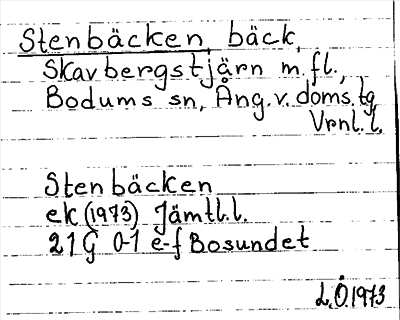 Stenbäcken, bäck,
Skavbergstjärn m.fl.,
Bodums sn, Ång.v. doms.tg
Vrnl.l.
Stenbäcken
ek (1973) Jämtl.l.
21G 0-1 e-f Bosundet
L.Ö.1973